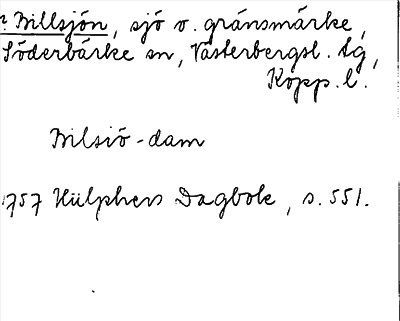 ? Billsjön, sjö o. gränsmärke,
Söderbärke sn, Västerbergsl. tg,
Kopp. l.
Bilsiö-dam
1757 Hülphers Dagbok, s. 551.